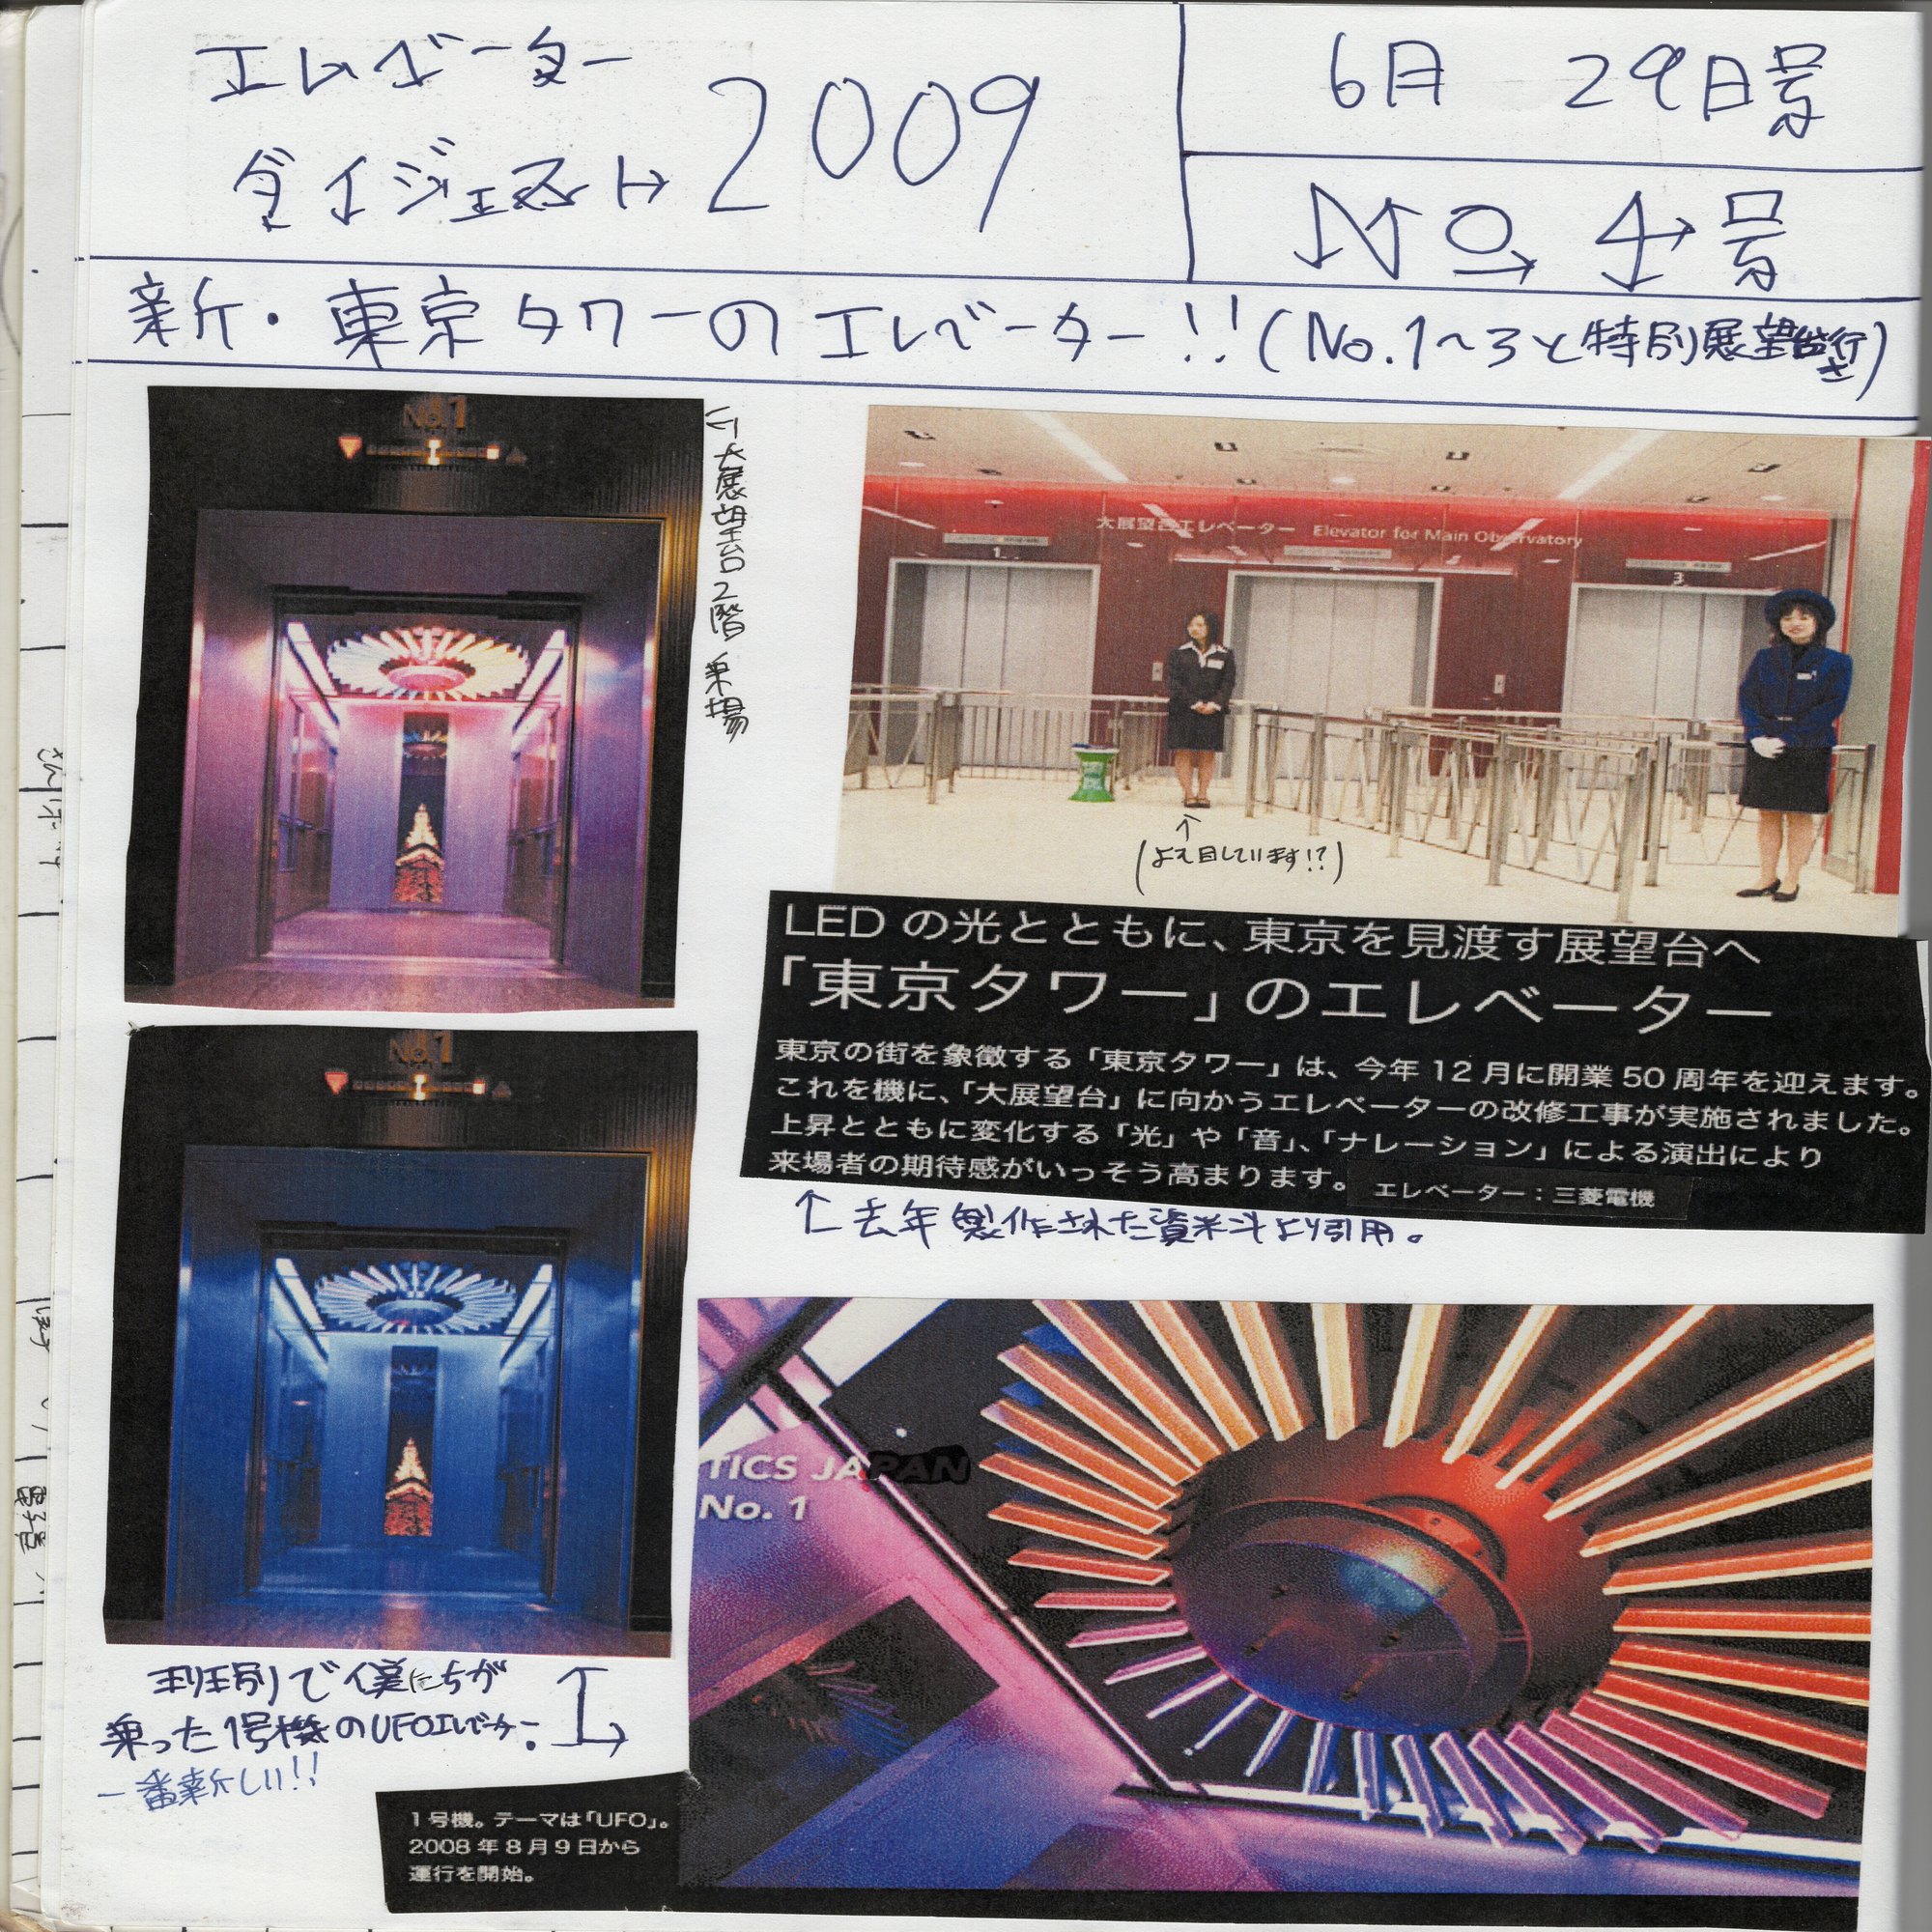 エレベーター
ダイジェスト 2009
6月 29日号
NO 4号
新・東京タワーのエレベーター!!(No.1~3と特別展望台行き)
No.1
⇦大展望台2階 乗場
大展望台エレベーター Elevator for Main Observatory
1
3
↑
(よそ目しています!?)
LED の光とともに、東京を見渡す展望台へ
「東京タワー」のエレベーター
東京の街を象徴する「東京タワー」は、今年 12 月に開業 50 周年を迎えます。
これを機に、「大展望台」に向かうエレベーターの改修工事が実施されました。
上昇とともに変化する「光」や「音」、「ナレーション」による演出により
来場者の期待感がいっそう高まります。 エレベーター：三菱電機
↑去年 製作された資料より引用。
No.1
TICS JAPAN
No. 1
で僕たちが
乗った1号機のUFOエレベーター.
一番新しい!!
1 号機。テーマは「UFO」。
2008 年 8 月 9 日から
運行を開始。